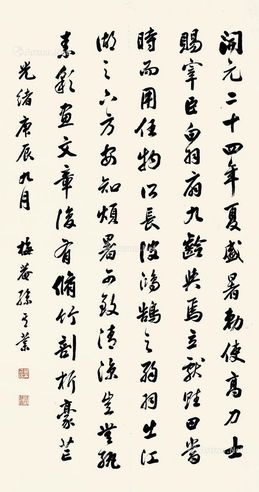 開元二十四年夏盛暑勅使高力士
賜宰臣白羽扇九齡與焉立獻賦曰當
時而用任物所長彼鴻鵠之弱羽出江
湖之下方安知煩暑可致清涼豈無紈
素彩畫文章復有脩竹剖析豪芒
光緒庚辰九月 梅菴孫